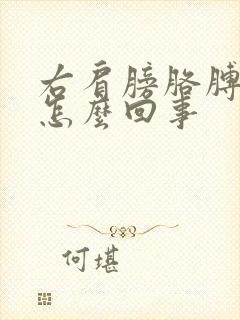 右肩膀胳膊
怎麼回事
何堪